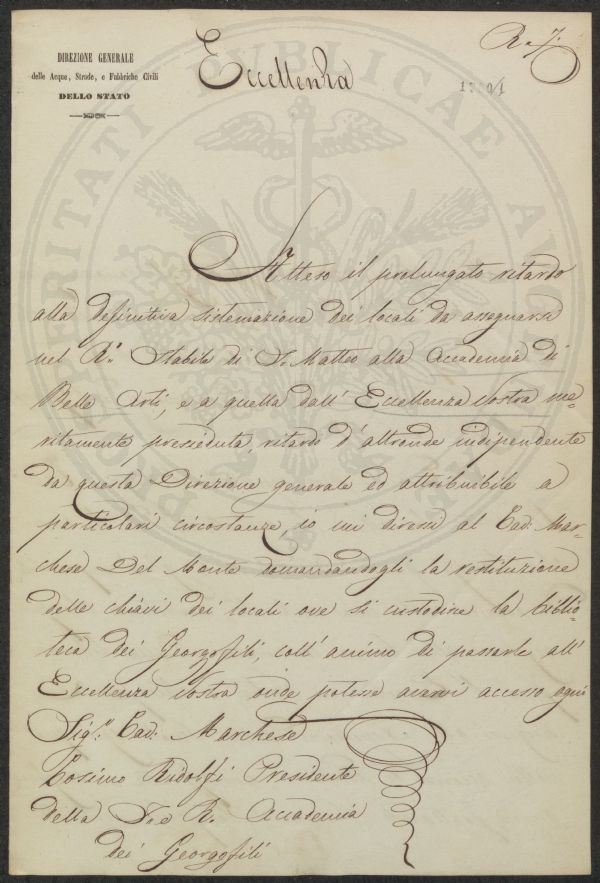 DIREZIONE GENERALE
delle Acque, Strade, e Fabbriche Civili
DELLO STATO
Eccellenza
Atteso il prolungato ritardo
alla definitiva sistemazione dei locali da assegnarsi
nel R. Stabile di S. Matteo alla Accademia di
Belle Arti, e a quella dall' Eccellenza Vostra me=
ritamente presieduta, ritardo d'altronde indipendente
da questa Direzione generale ed attribuibile a
particolari circostanze, io mi diressi al Cav. Mar=
chese Del Monte domandandogli la restituzione
delle chiavi dei locali ove si custodisce la biblio=
teca dei Georgofili, coll'animo di passarle all'
Eccellenza Vostra onde potesse avervi accesso ogni
Sig.r Cav. Marchese
Cosimo Ridolfi Presidente
della I. e R. Accademia
dei Georgofili